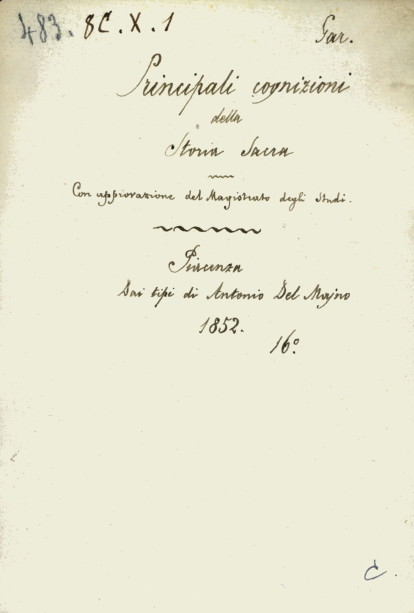 483. 8C. X. 1
Par.
Principali cognizioni
della
Storia Sacra
Con approvazione del Magistrato degli Studi.
Piacenza
Dai tipi di Antonio Del Majno
1852.
16º
C.